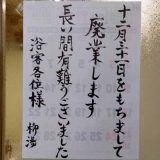 十二月三十一日をもちまして
廃業します
長い間有難うございました
浴客各位様
柳湯